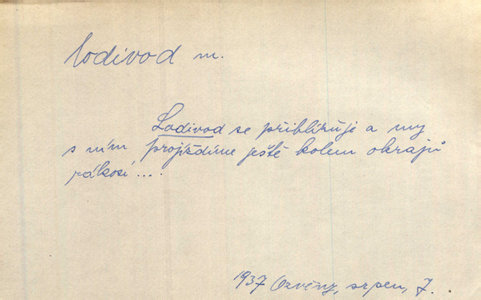 lodivod m.
Lodivod se přibližuje a my
s ním projíždíme ještě kolem okrajů
rákosí ....
1937 Ozvěny, srpen, 7.